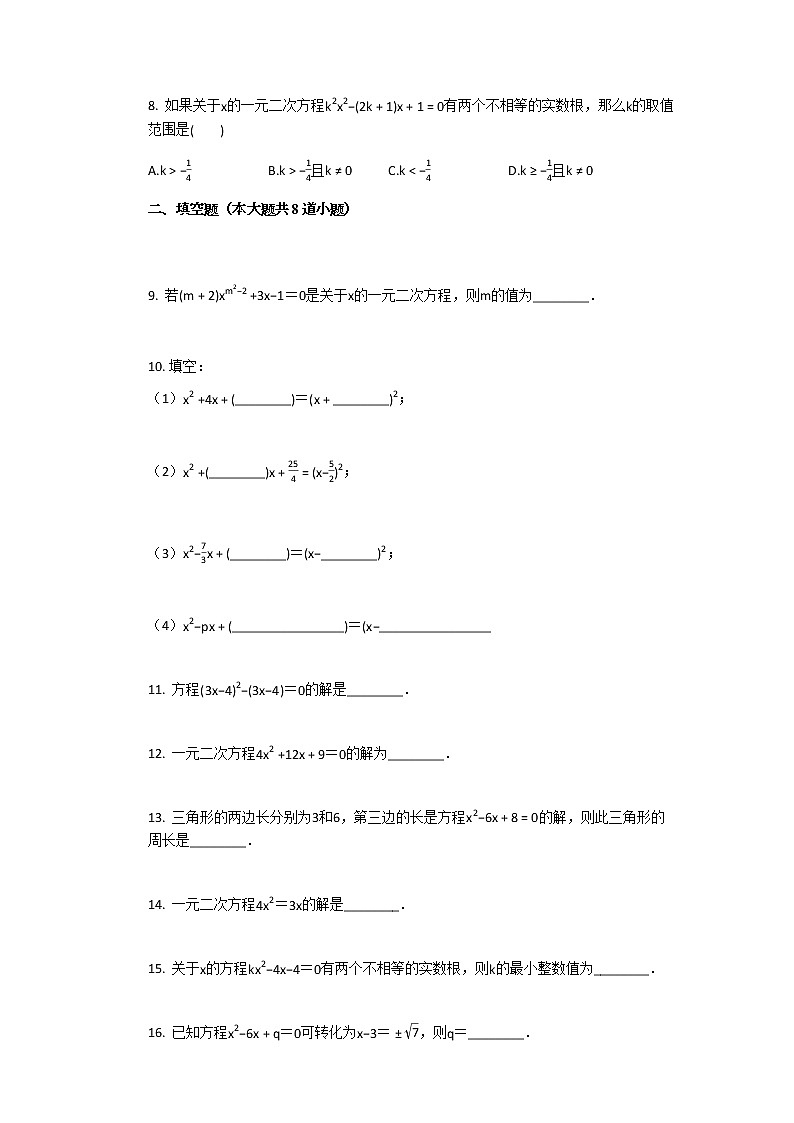 8. 如果关于x的一元二次方程k²x²−(2k + 1)x + 1 = 0有两个不相等的实数根，那么k的取值
范围是(　　)
A.k > −1/4　　B.k > −1/4且k ≠ 0　　C.k < −1/4　　D.k ≥ −1/4且k ≠ 0
二、填空题（本大题共8道小题）
9. 若(m + 2)x^(m²−2) +3x−1＝0是关于x的一元二次方程，则m的值为________．
10. 填空：
（1）x² +4x + (________)＝(x + ________)²；
（2）x² +(________)x + 25/4 = (x−5/2)²；
（3）x²−7/3x + (________)＝(x−________)²；
（4）x²−px + (________________)＝(x−________________
11. 方程(3x−4)²−(3x−4)＝0的解是________．
12. 一元二次方程4x² +12x + 9＝0的解为________．
13. 三角形的两边长分别为3和6，第三边的长是方程x²−6x + 8 = 0的解，则此三角形的
周长是________．
14. 一元二次方程4x²＝3x的解是________．
15. 关于x的方程kx²−4x−4＝0有两个不相等的实数根，则k的最小整数值为________．
16. 已知方程x²−6x + q＝0可转化为x−3＝ ±√7，则q＝________．